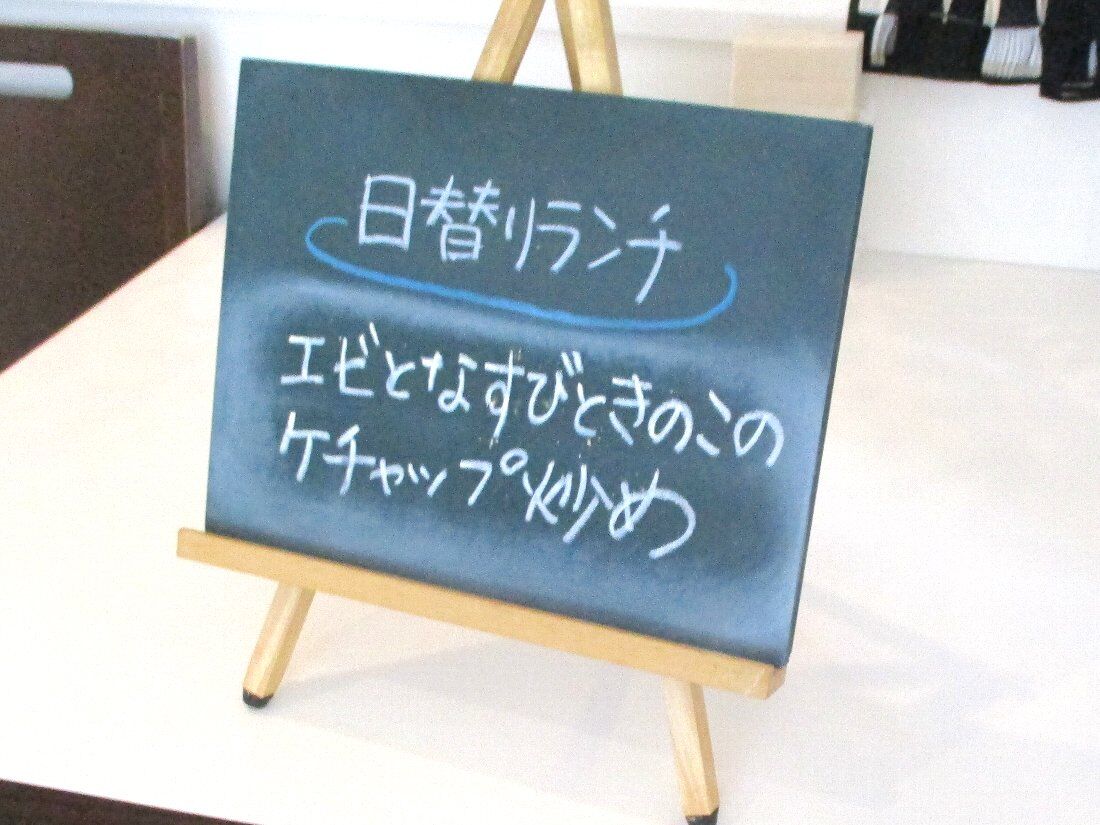 日替りランチ
エビとなすびときのこの
ケチャップ炒め